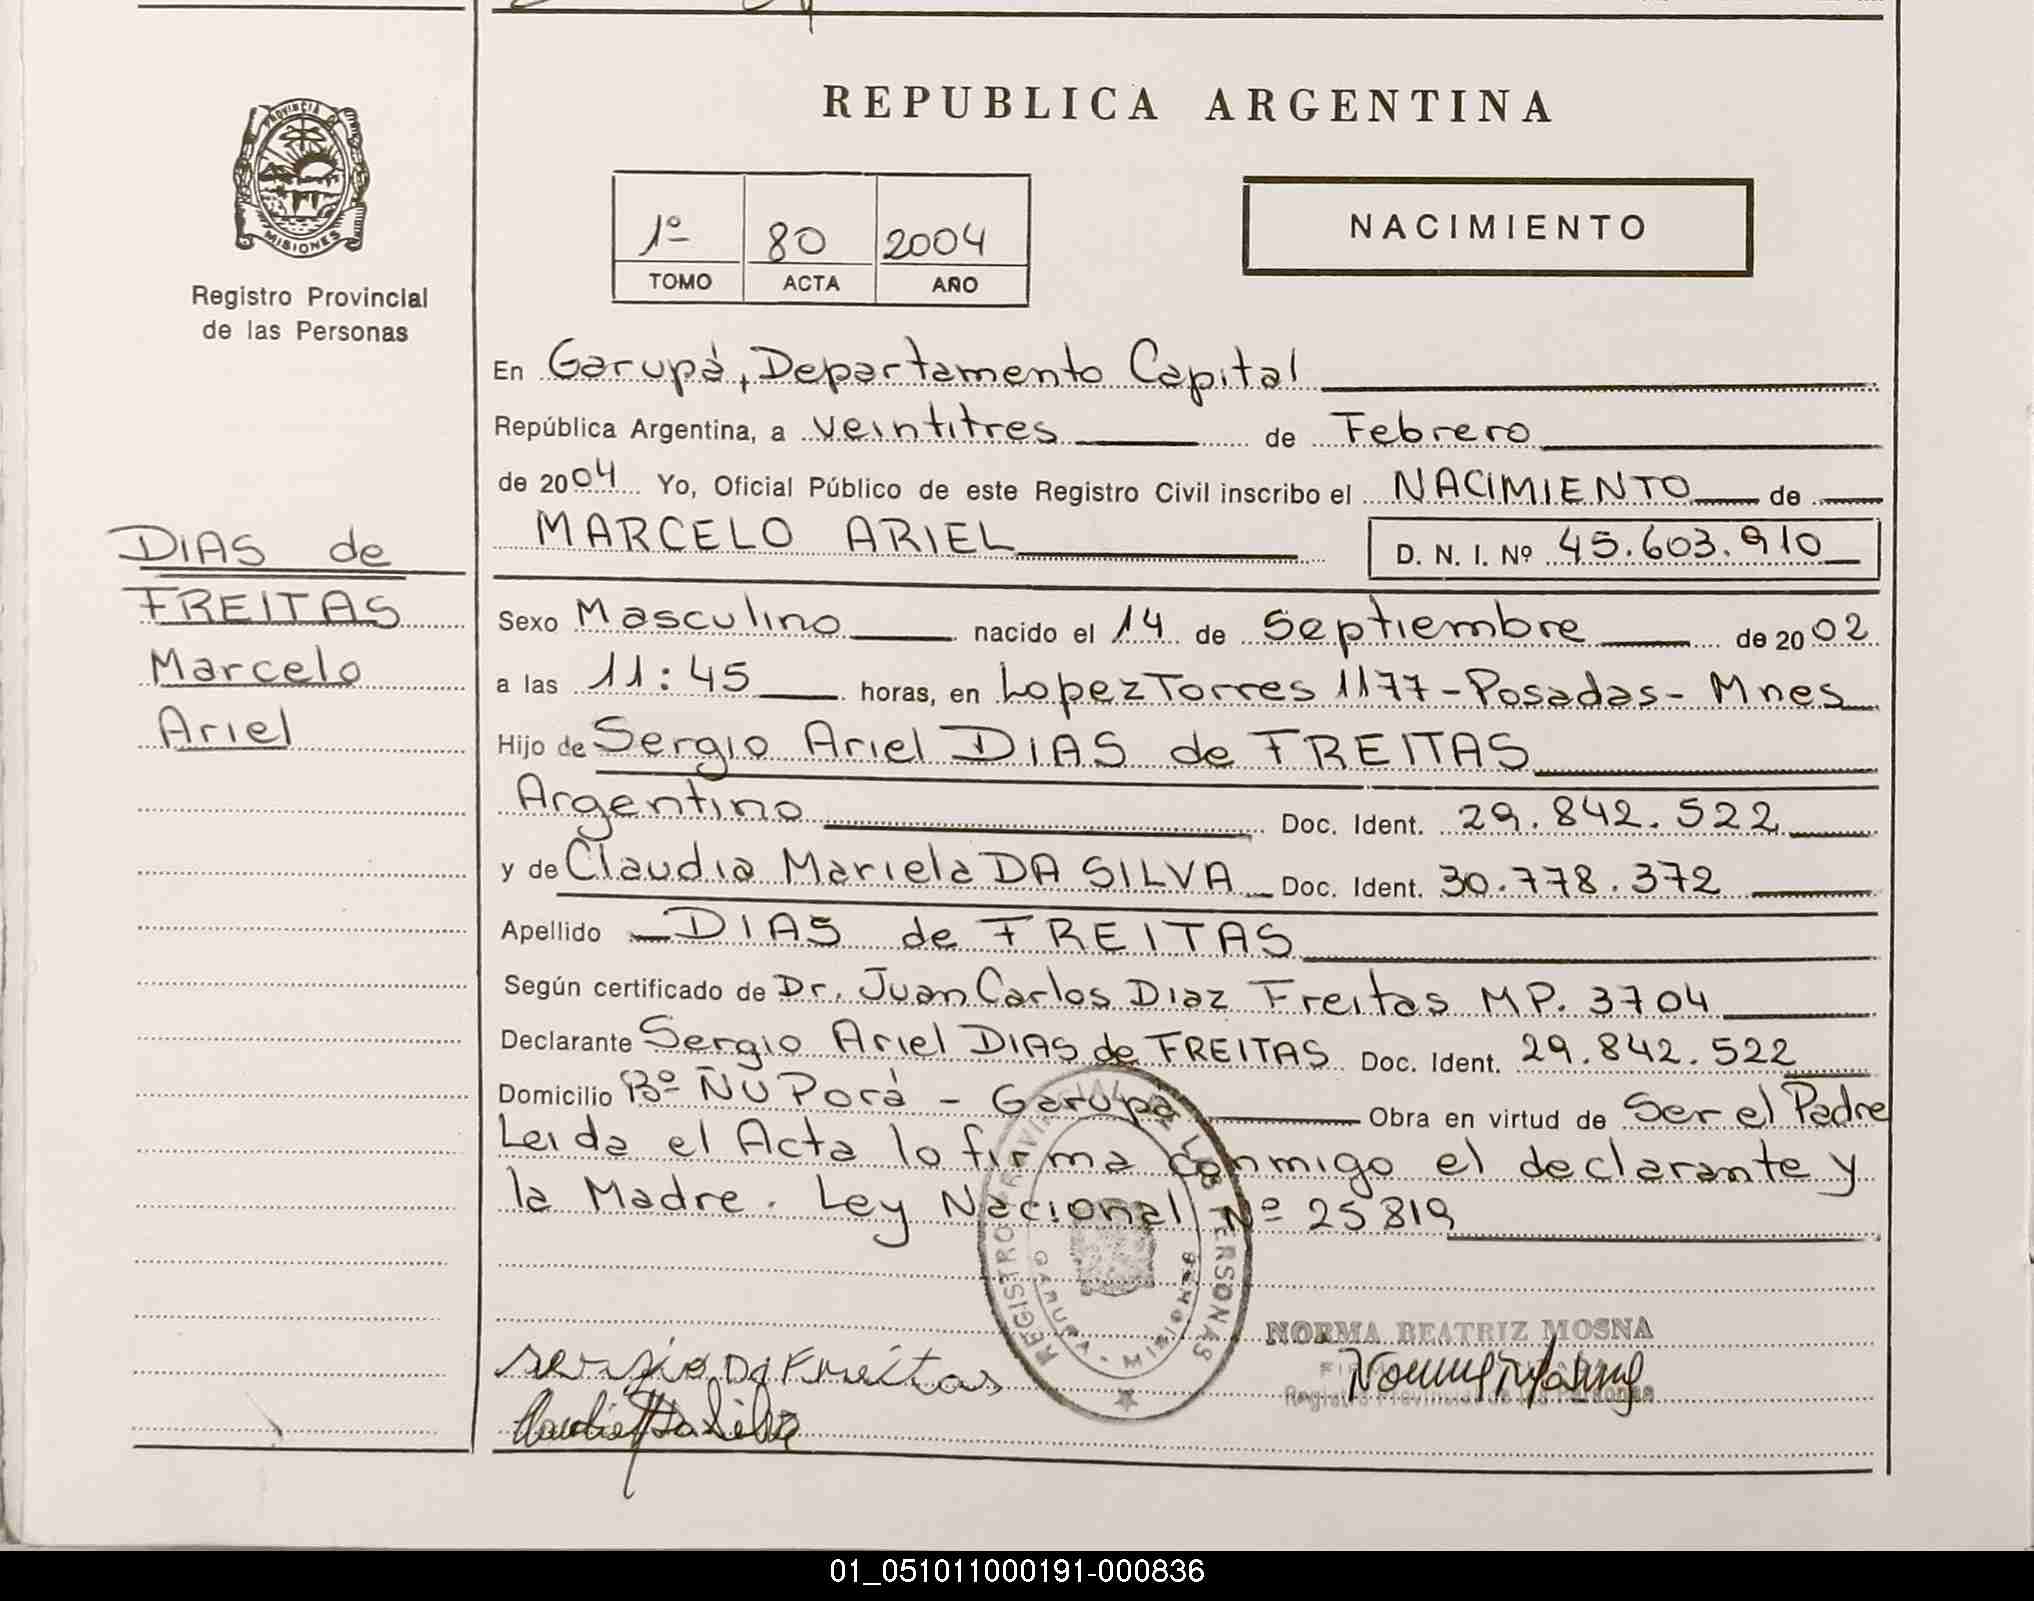 REPUBLICA ARGENTINA
PROVINCIA D
MISIONES
Registro Provincial
de las Personas
1º 80 2004
TOMO ACTA AÑO
NACIMIENTO
DIAS de
FREITAS
Marcelo
Ariel
En Garupá, Departamento Capital
República Argentina, a veintitres de Febrero
de 2004 Yo, Oficial Público de este Registro Civil inscribo el NACIMIENTO de
MARCELO ARIEL D. N. I. Nº 45.603.910
Sexo Masculino nacido el 14 de Septiembre de 2002
a las 11:45 horas, en Lopez Torres 1177-Posadas-Mnes
Hijo de Sergio Ariel DIAS de FREITAS
Argentino Doc. Ident. 29.842.522
y de Claudia Mariela DA SILVA Doc. Ident. 30.778.372
Apellido DIAS de FREITAS
Según certificado de Dr. Juan Carlos Diaz Freitas MP. 3704
Declarante Sergio Ariel DIAS de FREITAS Doc. Ident. 29.842.522
Domicilio Bº ÑU Porá - Garupá Obra en virtud de Ser el Padre
Leida el Acta lo firma conmigo el declarante y
la Madre. Ley Nacional Nº 25819
REGISTRO PROVINCIAL DE LAS PERSONAS
GARUPA - MISIONES
NORMA BEATRIZ MOSNA
Registro Provincial de las Personas
Sergio D d Freitas
Claudia M Da Silva
01_051011000191-000836